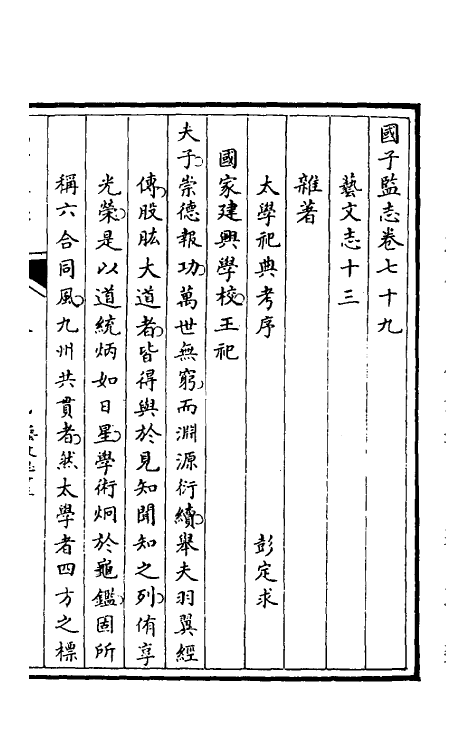 國子監志卷七十九
藝文志十三
雜著
太學祀典考序 彭定求
國家建興學校王祀
夫子崇德報功萬世無窮而淵源衍續舉夫羽翼經
傳股肱大道者皆得與於見知聞知之列侑享
光榮是以道統炳如日星學術炯於龜鑑固所
稱六合同風九州共貫者然太學者四方之標